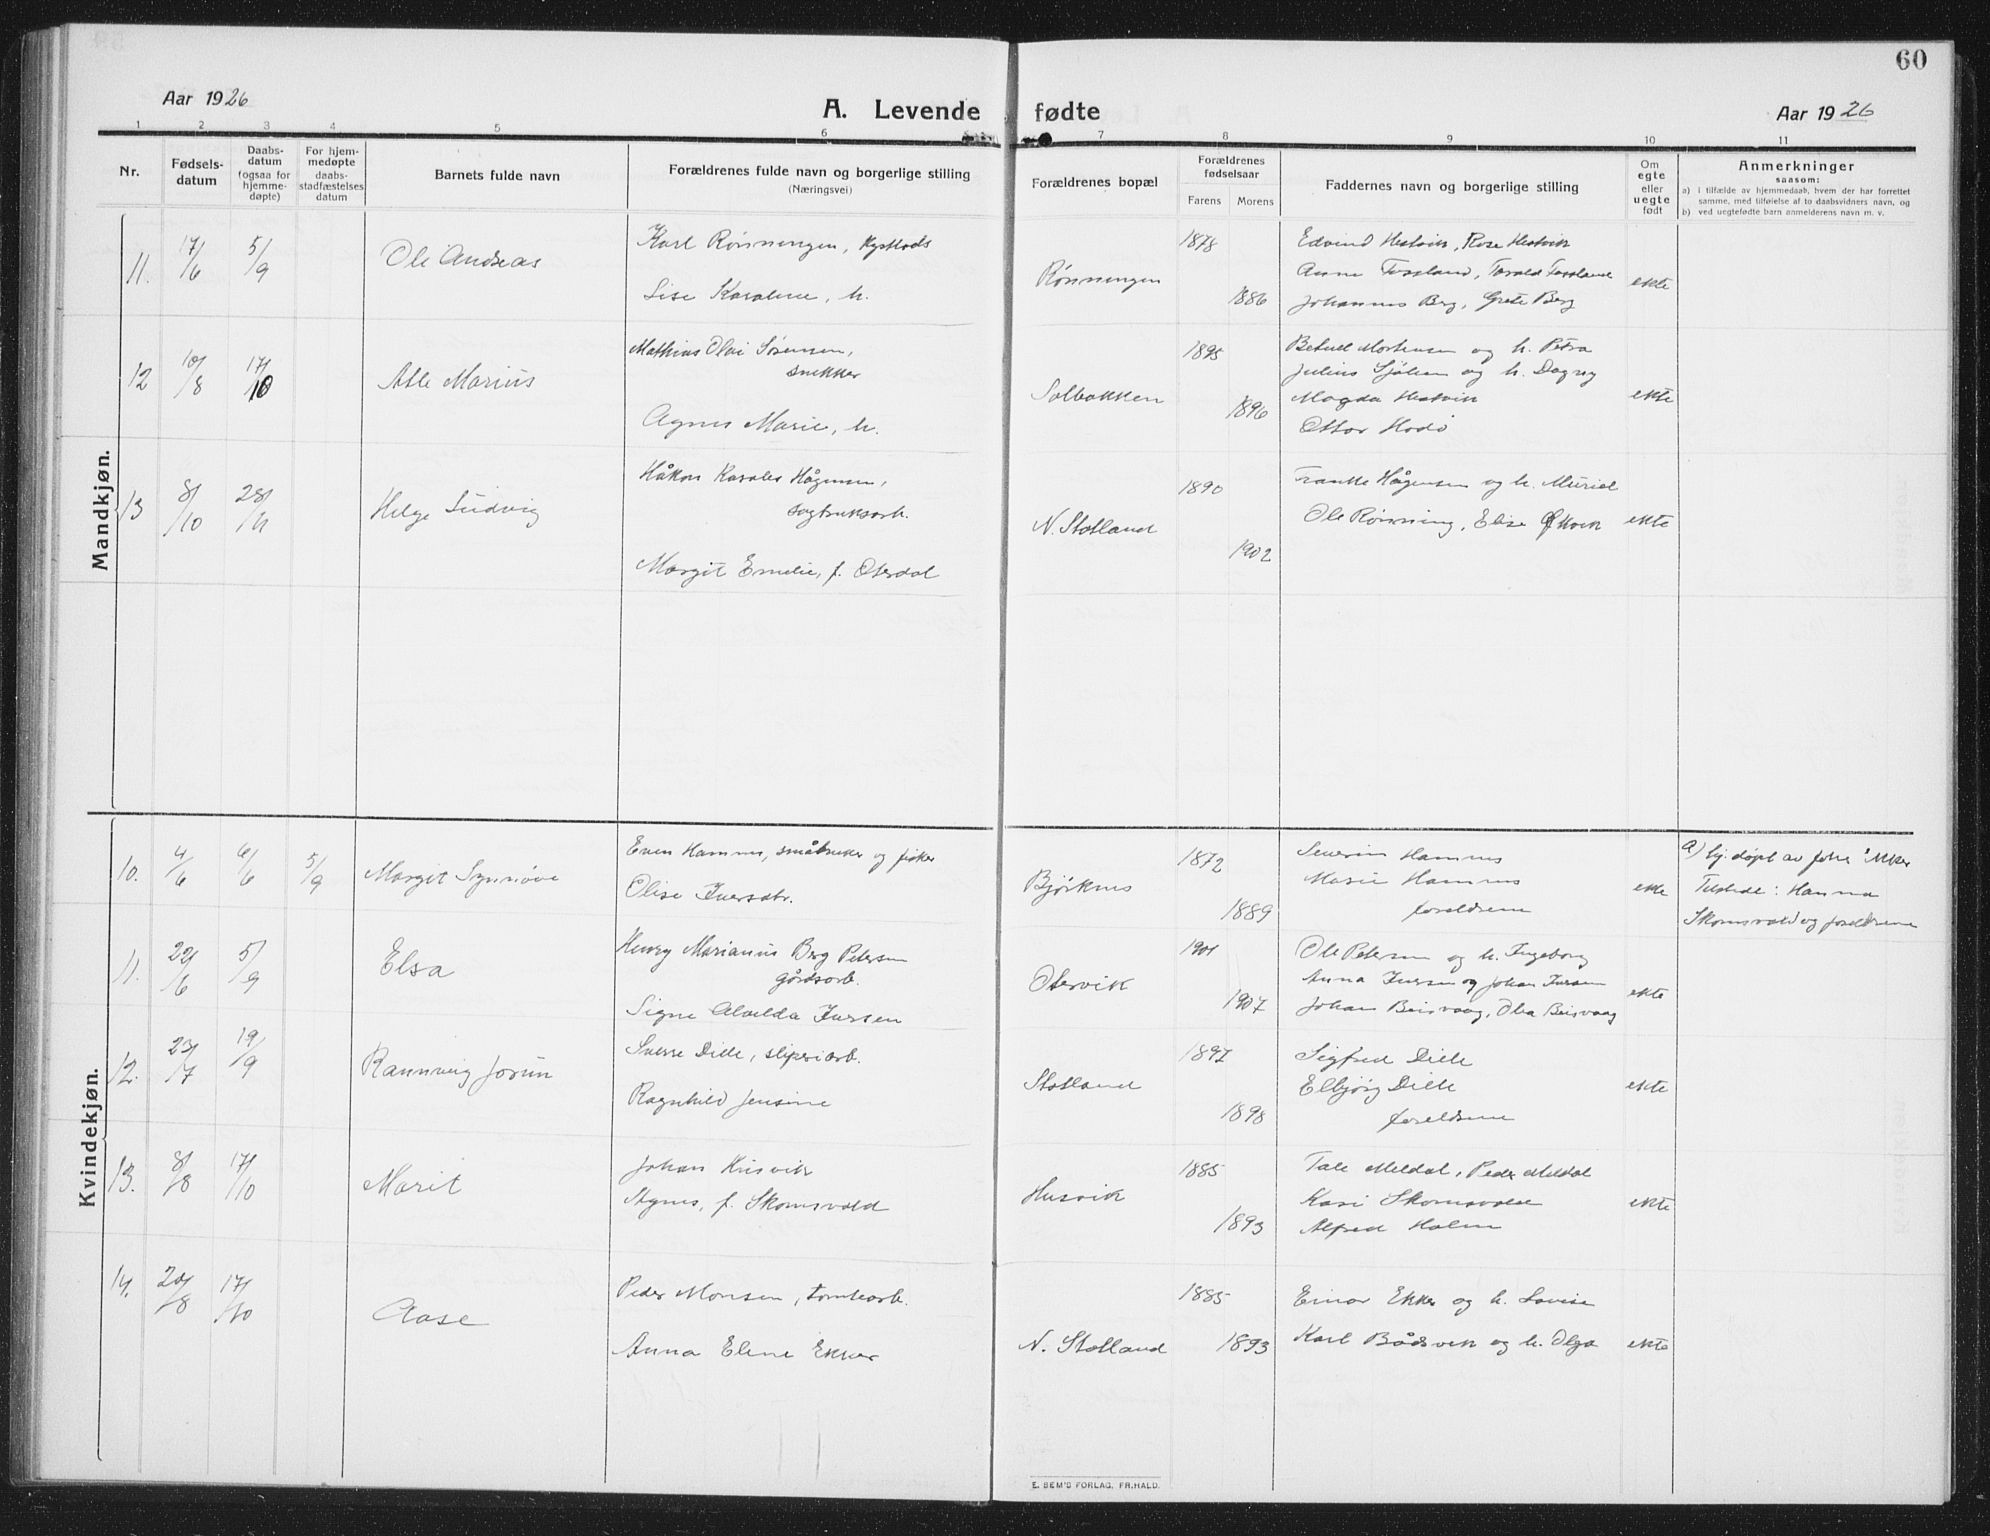 60
Aar 1926
A. Levende fødte
Aar 1926
1 2 3 4 5 6 7 8 9 10 11
Nr.
Fødsels-
datum
Daabs-
datum
(ogsaa for
hjemme-
døpte)
For hjem-
medøpte
daabs-
stadfæstelses
datum
Barnets fulde navn
Forældrenes fulde navn og borgerlige stilling
(Næringsvei)
Forældrenes bopæl
Forældrenes
fødselsaar
Farens Morens
Faddernes navn og borgerlige stilling
Om
egte
eller
uegte
født
Anmerkninger
saasom:
a) i tilfælde av hjemmedaab, hvem der har forrettet
samme, med tilføielse af to daabsvidners navn, og
b) ved uegtefødte barn anmelderens navn m. v.
Mandkjøn.
11. 17/6 5/9 Ole Andreas
Karl Rønningen,
Lise Karoline, h.
Rønningen
1878
1886
Edvind Hestvik, Rose Hestvik
Anne Fossland, Torald Fossland
Johannes Berg, Grete Berg
ekte
12 10/8 17/10 Atle Marius
Mathias Olai Sørensen,
snekker
Agnes Marie, h.
Solbakken
1895
1896
Betuel Mortensen og h. Petra
Julius Sjølsen og h. Dagny
Magda Hestvik
Ottar Hodø
ekte
13 8/10 28/11 Helge Ludvig
Håkon Karales Hågensen,
sagbruksarb.
Margit Emelie, f. Oterdal
N. Statland
1890
1902
Hågensen og h. Muriel
Ole Rønning, Elise
ekte
Kvindekjøn.
10. 4/6 6/6 5/9 Margit Synnøve
Even Hamnes, småbruker og fisker
Olise Iversdtr.
Bjørknes
1872
1889
Severin Hamnes
Marie Hamnes
foreldrene
ekte
a) hj. døpt av
Tilstede: Hanna
Skomsvold og foreldrene
11. 22/6 5/9 Elsa
Henry Marianus Berg Petersen
gårdsarb.
Signe Alvilda Iversen
Otervik
1901
1907
Ole Petersen og h. Ingeborg
Anna Iversen og Johan Iversen
Johan Beisvaag, Olea Beisvaag
ekte
12. 23/7 19/9 Rannveig Jorun
Sverre Dille, sliperiarb.
Ragnhild Jensine
Statland
1897
1898
Sigfred Dille
Elbjørg Dille
foreldrene
ekte
13. 8/8 17/10 Marit
Johan Husvik
Agnes, f. Skomsvold
Husvik
1885
1893
Tale Meldal, Peder Meldal
Kari Skomsvold
Alfred Holm
ekte
14. 20/8 17/10 Aase
Peder Monsen, tomtearb.
Anna Elene Ekker
N. Statland
1885
1893
Einar Ekker og h. Lovise
Karl Bådsvik og h. Olga
ekte
E. SEM'S FORLAG, FR.HALD.